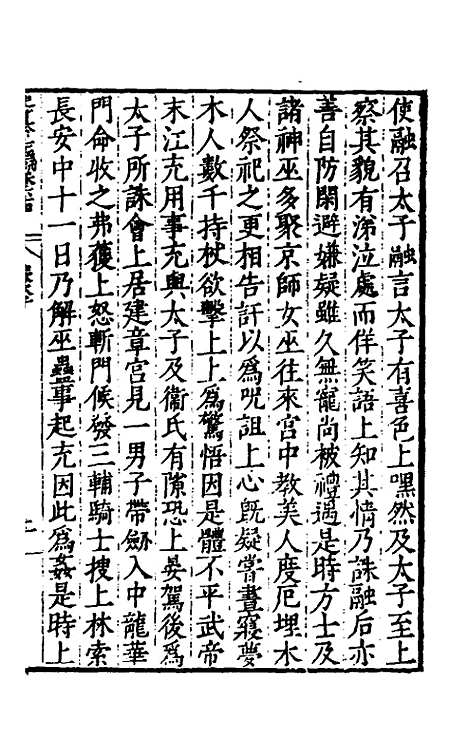 使融召太子融言太子有喜色上嘿然及太子至上
察其貌有涕泣處而佯笑語上知其情乃誅融后亦
善自防閑避嫌疑雖久無寵尚被禮遇是時方士及
諸神巫多聚京師女巫往來宮中教美人度厄埋木
人祭祀之更相告訐以為呪詛上心既疑嘗晝寢夢
木人數千持杖欲擊上上為驚悟因是體不平武帝
末江充用事充與太子及衞氏有隙恐上晏駕後為
太子所誅會上居建章宮見一男子帶劒入中龍華
門命收之弗獲上怒斬門候發三輔騎士搜上林索
長安中十一日乃解巫蠱事起充因此為姦是時上